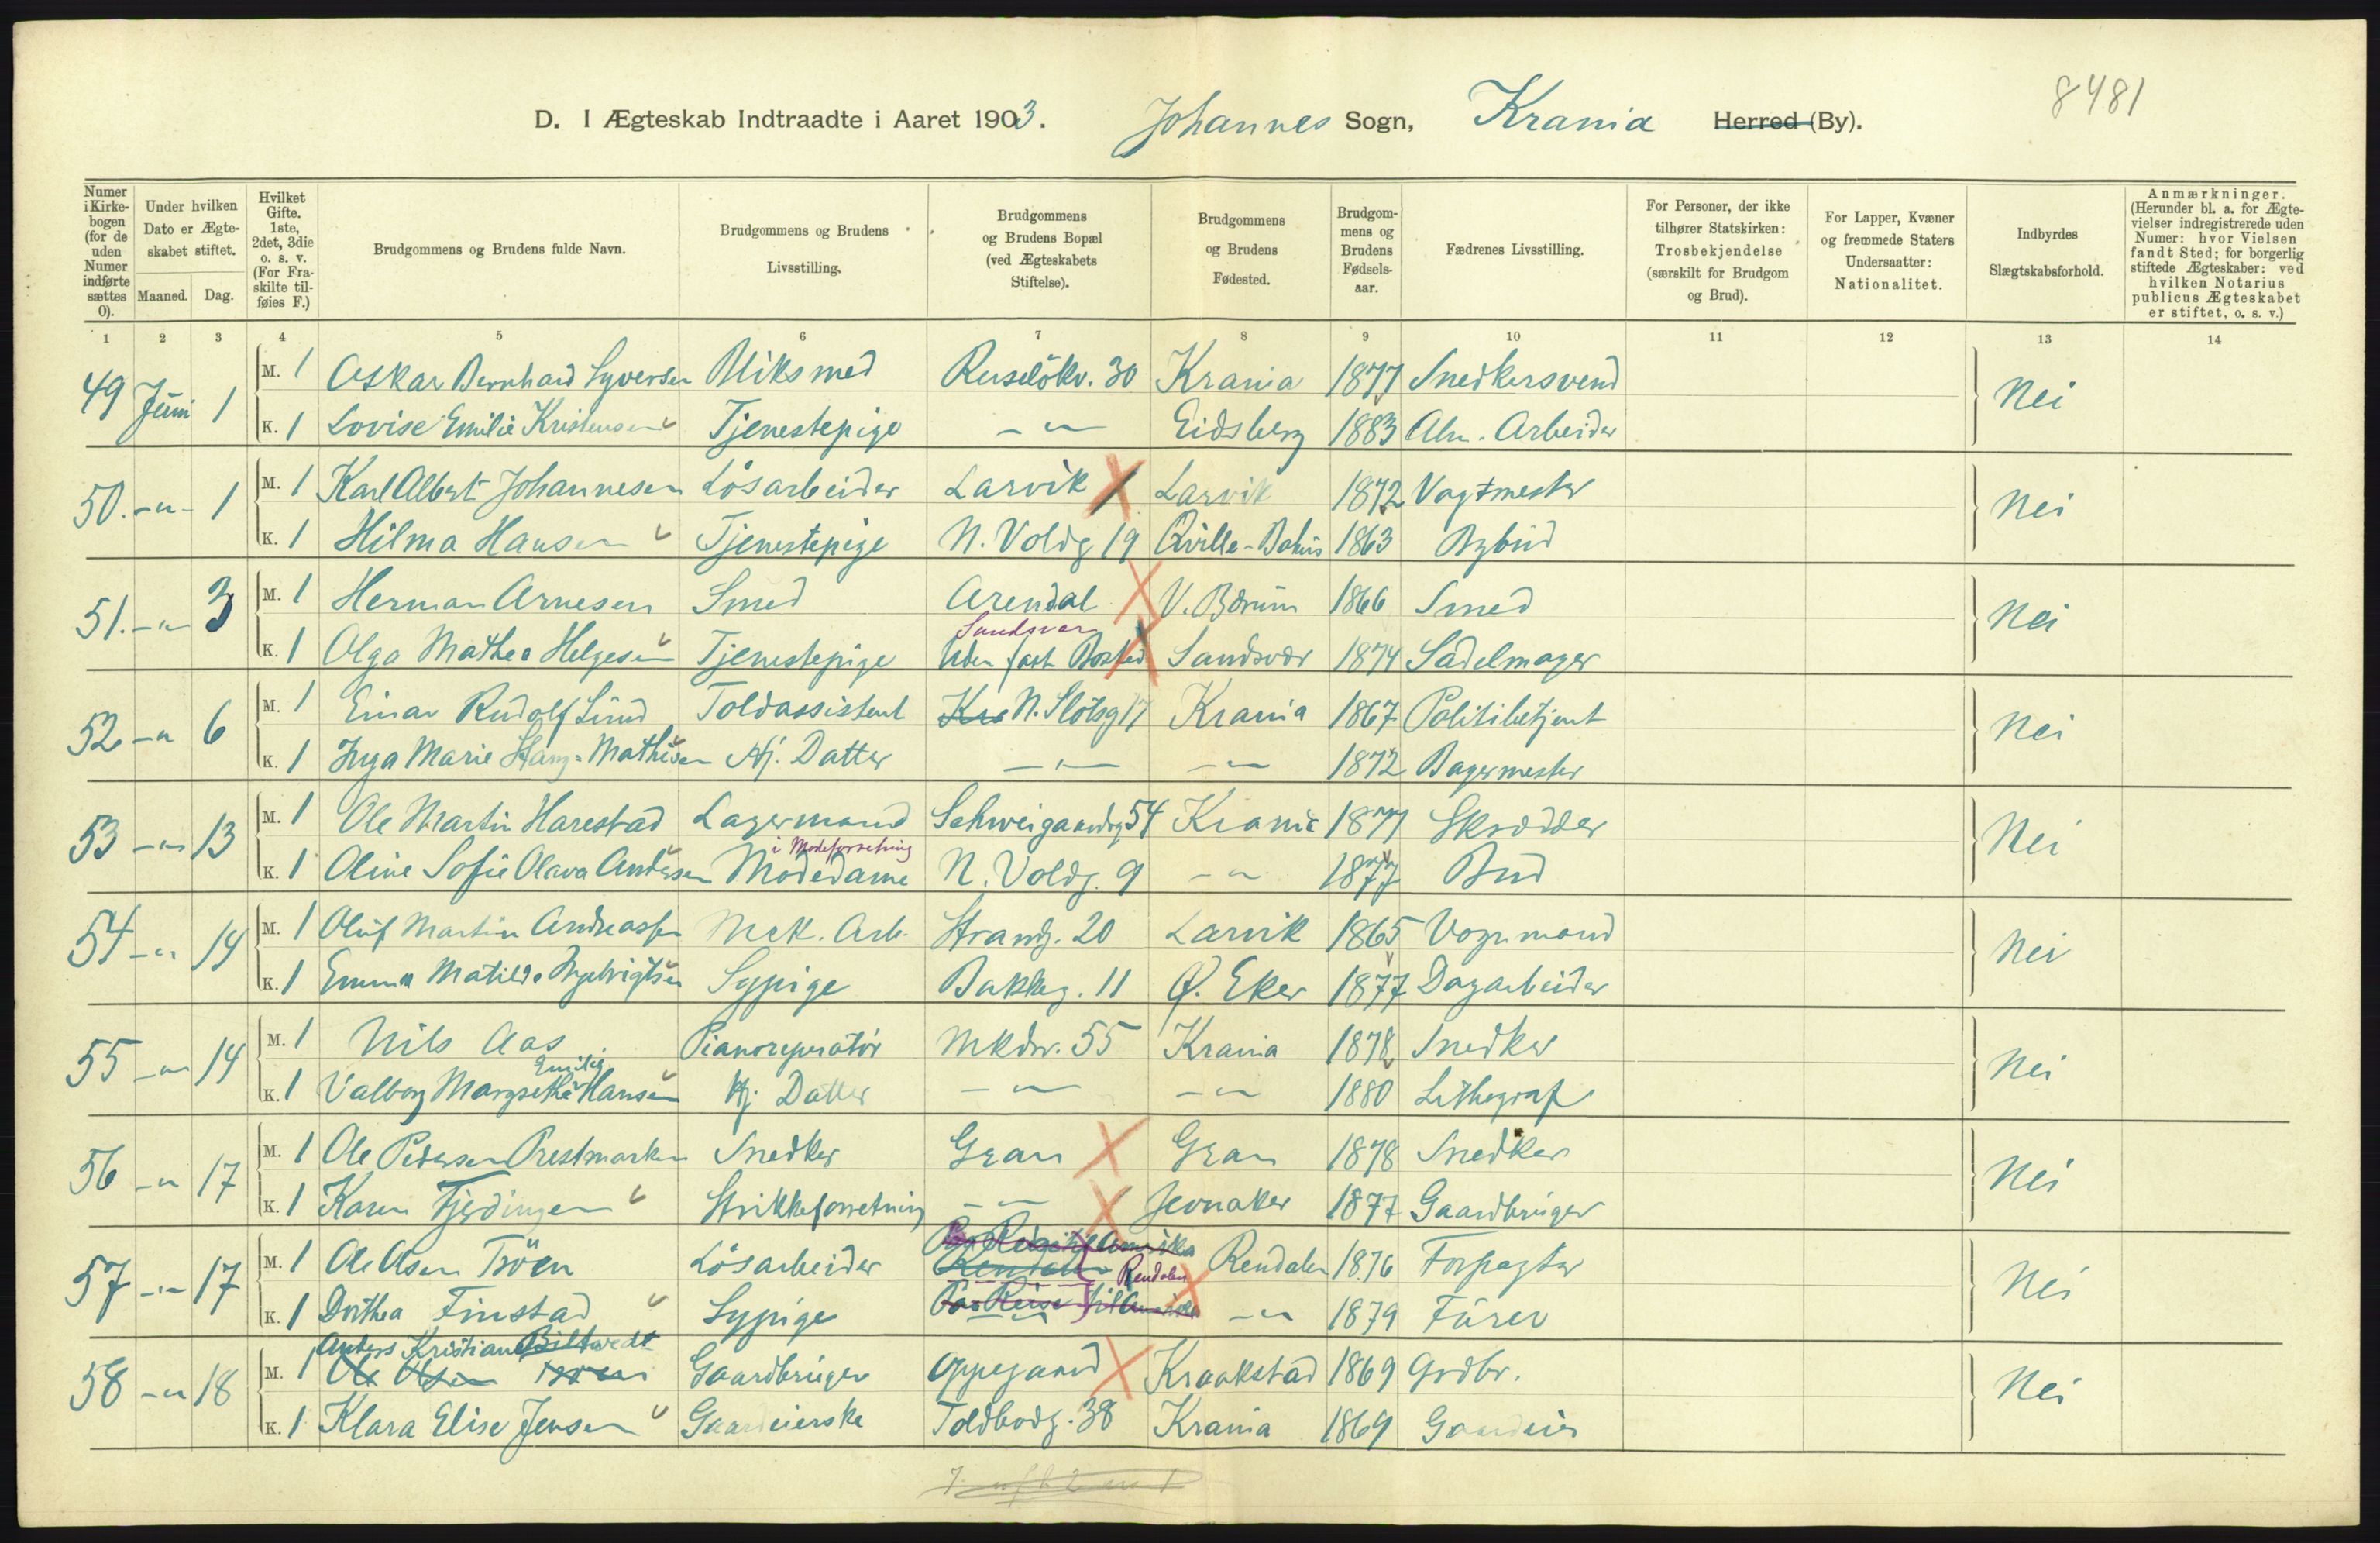 8481
D. I Ægteskab Indtraadte i Aaret 1903. Johannes Sogn, Krania Herred (By).
Numer i Kirkebogen (for de uden Numer indførte sættes 0).
Under hvilken Dato er Ægteskabet stiftet.
Maaned. Dag.
Hvilket Gifte. 1ste, 2det, 3die o. s. v. (For Fraskilte tilføies F.)
Brudgommens og Brudens fulde Navn.
Brudgommens og Brudens Livsstilling.
Brudgommens og Brudens Bopæl (ved Ægteskabets Stiftelse).
Brudgommens og Brudens Fødested.
Brudgommens og Brudens Fødselsaar.
Fædrenes Livsstilling.
For Personer, der ikke tilhører Statskirken: Trosbekjendelse (særskilt for Brudgom og Brud).
For Lapper, Kvæner og fremmede Staters Undersaatter: Nationalitet.
Indbyrdes Slægtskabsforhold.
Anmærkninger. (Herunder bl. a. for Ægtevielser indregistrerede uden Numer: hvor Vielsen fandt Sted; for borgerlig stiftede Ægteskaber: ved hvilken Notarius publicus Ægteskabet er stiftet, o. s. v.)
1 2 3 4 5 6 7 8 9 10 11 12 13 14
49 Juni 1 M. 1 Oskar Bernhard Syversen Bliksmed Ruseløkv. 30 Krania 1877 Snedkersvend Nei
K. 1 Lovise Emilie Kristensen Tjenestepige -"- Eidsberg 1883 Alm. Arbeider
50. -"- 1 M. 1 Karl Albert Johannesen Løsarbeider Larvik Larvik 1872 Vagtmester Nei
K. 1 Hilma Hansen Tjenestepige N. Voldg 19 Qville-Bohus 1863 Bybud
51. -"- 3 M. 1 Herman Arnesen Smed Arendal V. Bærum 1866 Smed Nei
Sandsvær
K. 1 Olga Mathea Helgesen Tjenestepige Uden fast Bosted Sandsvær 1874 Sadelmager
52 -"- 6 M. 1 Einar Rudolf Lund Toldassistent Kra N. Slotsg 17 Krania 1867 Politibetjent Nei
K. 1 Inga Marie Stang-Mathisen Hj. Datter -"- -"- 1872 Bagermester
53 -"- 13 M. 1 Ole Martin Harestad Lagermand Schweigaardsg 54 Krania 1877 Skrædder Nei
i Modeforretning
K. 1 Oline Sofie Olava Andersen Modedame N. Voldg. 9 -"- 1877 Bud
54 -"- 14 M. 1 Oluf Martin Andreassen Mek. Arb. Strandg. 20 Larvik 1865 Vognmand Nei
K. 1 Emma Matilde Ingebrigtsen Sypige Bakkeg. 11 Ø. Eker 1877 Dagarbeider
55 -"- 14 M. 1 Nils Aas Pianoreparatør Mkdv. 55 Krania 1878 Snedker Nei
Emilie
K. 1 Valborg Margrethe Hansen Hj. Datter -"- -"- 1880 Lithograf
56 -"- 17 M. 1 Ole Pedersen Prestmarken Snedker Gran Gran 1878 Snedker Nei
K. 1 Karen Fjerdingen Strikkeforretning -"- Jevnaker 1877 Gaardbruger
Paa Reise til Amerika
57 -"- 17 M. 1 Ole Olsen Troen Løsarbeider Rendalen Rendalen Rendalen 1876 Forpagter Nei
K. 1 Dorthea Finstad Sypige Paa Reise til Amerika -"- 1879 Furer
Anders Kristian Biltvedt
58 -"- 18 M. 1 Ole Olsen Troen Gaardbruger Oppegaard Kraakstad 1869 Grdbr. Nei
K. 1 Klara Elise Jensen Gaardeierske Toldbodg. 38 Krania 1869 Gaardeier